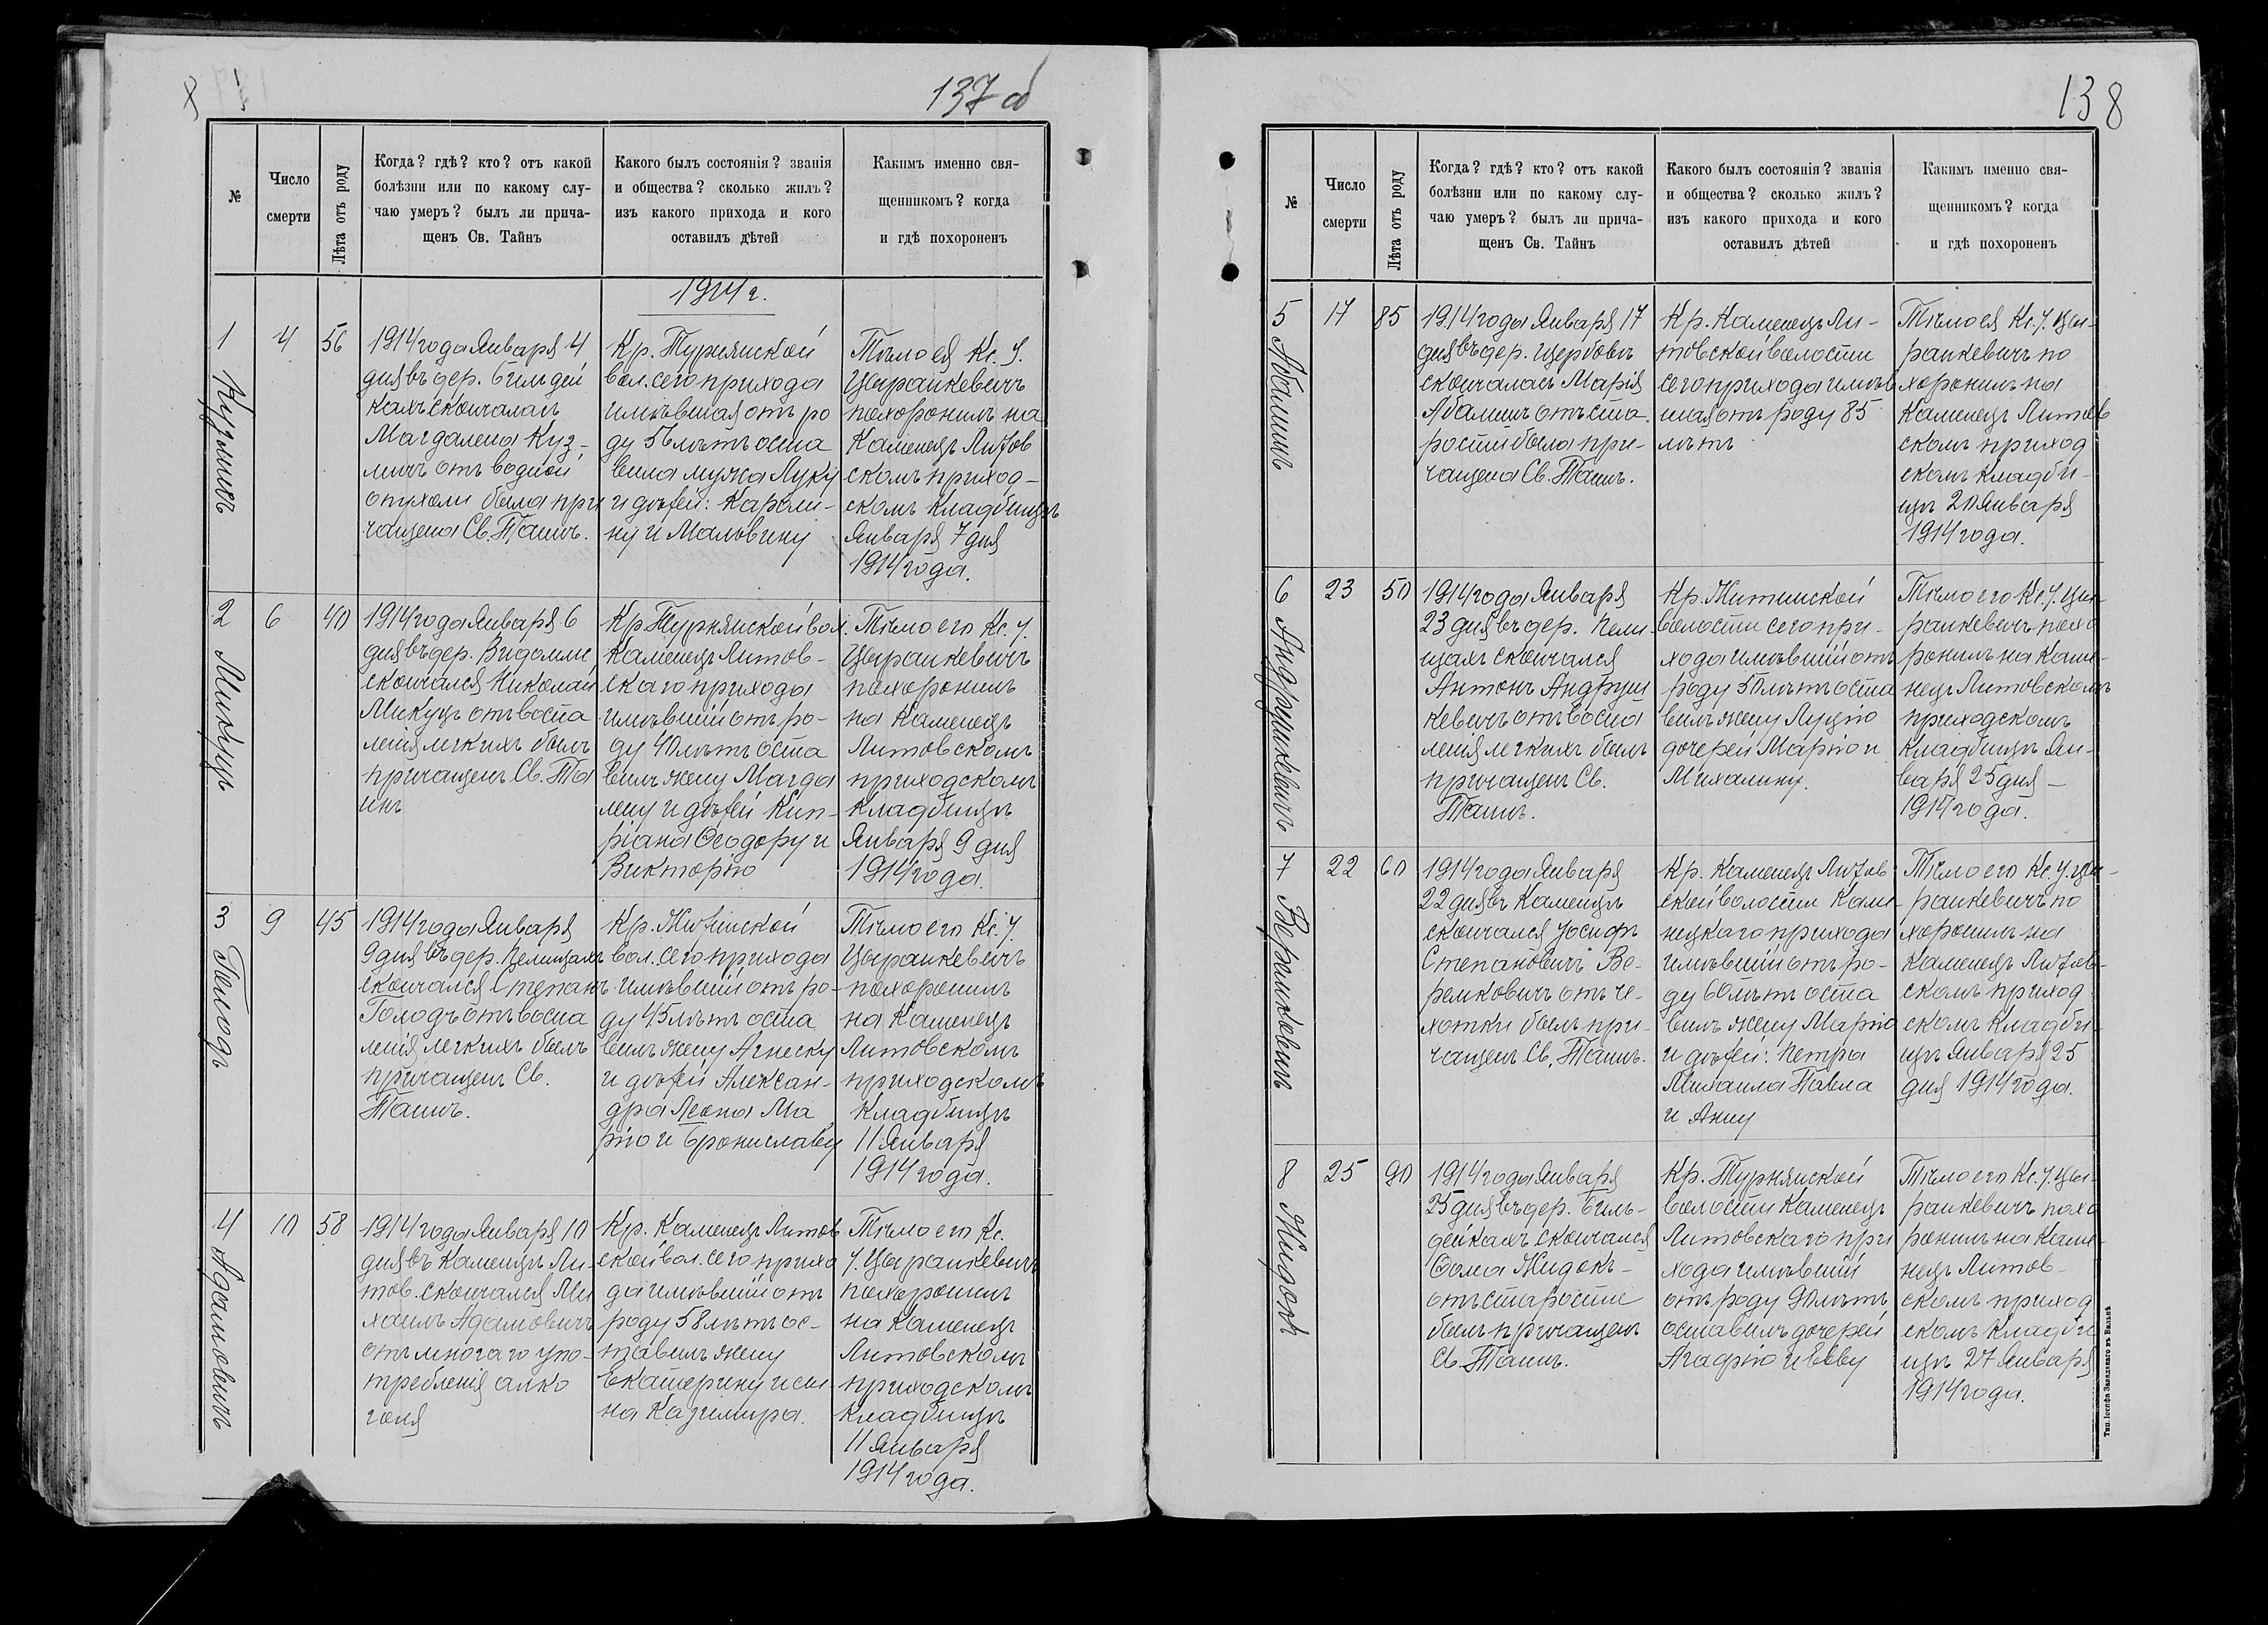 137 об
№
Число
смерти
Лѣта отъ роду
Когда? гдѣ? кто? отъ какой
болѣзни или по какому слу-
чаю умеръ? былъ ли прича-
щенъ Св. Тайнъ
Какого былъ состоянія? званія
и общества? сколько жилъ?
изъ какого прихода и кого
оставилъ дѣтей
Какимъ именно свя-
щенникомъ? когда
и гдѣ похороненъ
1914 г.
1
Кузьмичъ
4
56
1914 года Января 4
дня въ дер. Бильдей
кахъ скончалась
Магдалена Куз-
мичъ отъ водной
опухоли была при
чащена Св. Таинъ.
Кр. Турнянской
вол. сего прихода
имѣвшая отъ ро
ду 56 лѣтъ оста
вила мужа Луку
и дѣтей: Кароли-
ну и Мальвину
Тѣло ея Кс. У.
Цыранкевичъ
похоронилъ на
Каменецъ Литов
скомъ приход-
скомъ кладбищѣ
Января 7 дня
1914 года.
2
Микуцъ
6
40
1914 года Января 6
дня въ дер. Видомле
скончался Николай
Микуцъ отъ воспа
ленія легкихъ былъ
причащенъ Св. Та
инъ
Кр. Турнянской вол.
Каменецъ Литов-
скаго прихода
имѣвший отъ ро-
ду 40 лѣтъ оста
вилъ жену Магда
лену и дѣтей Кип-
ріана Ѳеодору и
Викторію
Тѣло его Кс. У.
Цыранкевичъ
похоронилъ
на Каменецъ
Литовскомъ
приходскомъ
кладбищѣ
Января 9 дня
1914 года.
3
Голодъ
9
45
1914 года Января
9 дня въ дер. Пелищахъ
скончался Степанъ
Голодъ отъ воспа
ленія легкихъ былъ
причащенъ Св.
Таинъ.
Кр. Житинской
вол. сего прихода
имѣвший отъ ро-
ду 45 лѣтъ оста
вилъ жену Агнеску
и дѣтей Алексан-
дра Леона Ма
рію и Брониславу
Тѣло его Кс. У.
Цыранкевичъ
похоронилъ
на Каменецъ
Литовскомъ
приходскомъ
кладбищѣ
11 Января
1914 года.
4
Адамовичъ
10
58
1914 года Января 10
дня въ Каменцѣ Ли-
тов. скончался Ми
хаилъ Адамовичъ
отъ многаго упо-
требленія алко
голя
Кр. Каменецъ Литов
ской вол. сего прихо
да имѣвший отъ
роду 58 лѣтъ ос-
тавилъ жену
Екатерину и сы-
на Казимира.
Тѣло его Кс.
У. Цыранкевичъ
похоронилъ
на Каменецъ
Литовскомъ
приходскомъ
кладбищѣ
11 Января
1914 года.
138
№
Число
смерти
Лѣта отъ роду
Когда? гдѣ? кто? отъ какой
болѣзни или по какому слу-
чаю умеръ? былъ ли прича-
щенъ Св. Тайнъ
Какого былъ состоянія? званія
и общества? сколько жилъ?
изъ какого прихода и кого
оставилъ дѣтей
Какимъ именно свя-
щенникомъ? когда
и гдѣ похороненъ
5
Абалинъ
17
85
1914 года Января 17
дня въ дер. Щербовѣ
скончалась Марія
Абалинъ отъ ста-
рости была при-
чащена Св. Таинъ.
Кр. Каменецъ Ли-
товской волости
сего прихода имѣв
шая отъ роду 85
лѣтъ
Тѣло ея Кс. У. Цы-
ранкевичъ по
хоронилъ на
Каменецъ Литов
скомъ приход
скомъ кладби-
щѣ 20 Января
1914 года.
6
Андрушкевичъ
23
50
1914 года Января
23 дня въ дер. Пели-
щахъ скончался
Антонъ Андруш
кевичъ отъ воспа
ленія легкихъ былъ
причащенъ Св.
Таинъ.
Кр. Житинской
волости сего при-
хода имѣвший отъ
роду 50 лѣтъ оста
вилъ жену Луцію
дочерей Марію и
Михалину.
Тѣло его Кс. У. Цы-
ранкевичъ похо
ронилъ на Каме-
нецъ Литовскомъ
приходскомъ
кладбищѣ Ян-
варя 25 дня —
1914 года.
7
Веремковичъ
22
60
1914 года Января
22 дня въ Каменцѣ
скончался Іосифъ
Степановичъ Ве-
ремковичъ отъ че-
хотки былъ при-
чащенъ Св. Таинъ.
Кр. Каменецъ Литов
ской волости Каме-
нецкаго прихода
имѣвший отъ ро-
ду 60 лѣтъ оста
вилъ жену Марію
и дѣтей: Петра
Михаила Павла
и Анну
Тѣло его Кс. У. Цы-
ранкевичъ по
хоронилъ на
Каменецъ Литов-
скомъ приход
скомъ кладби-
щѣ Января 25
дня 1914 года.
8
Жидокъ
25
90
1914 года Января
25 дня въ дер. Биль-
дейкахъ скончался
Ѳома Жидокъ-
отъ старости
былъ причащенъ
Св. Таинъ.
Кр. Турнянской
волости Каменецъ
Литовскаго при
хода имѣвший
отъ роду 90 лѣтъ
оставилъ дочерей
Агафію и Евву
Тѣло его Кс. У. Цы-
ранкевичъ похо
ронилъ на Каме-
нецъ Литов-
скомъ приход
скомъ кладби
щѣ 27 Января
1914 года.
Тип. Іосифа Завадзкаго въ Вильнѣ